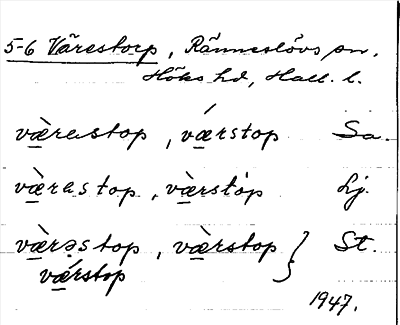 5-6 Vårestorp, Ränneslövs sn,
Höks hd, Hall. l.
væ̀rastop, vǽrstop Sa.
væ̀rastop, væ̀rstòp Lj.
væ̀rəstop, væ̀rstop } St.
vǽrstop
1947.